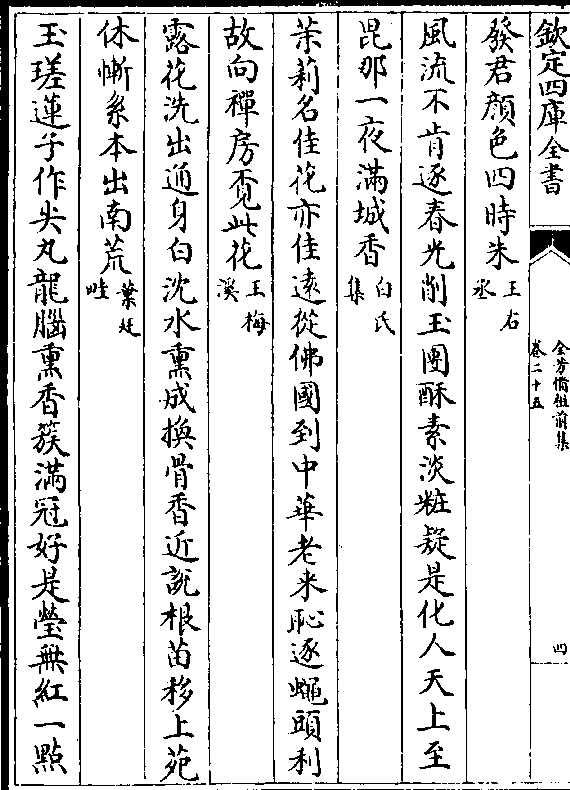 欽定四庫全書
全芳備祖前集
卷二十五
四
發君顔色四時朱王右丞
風流不肯逐春光削玉團酥素淡粧疑是化人天上至
毘那一夜滿城香白氏集
茉莉名佳花亦佳遠從佛國到中華老來恥逐蠅頭利
故向禪房覔此花王梅溪
露花洗出通身白沈水熏成換骨香近説根苗移上苑
休慚系本出南荒葉廷珪
玉瑳蓮子作尖丸龍腦熏香簇滿冠好是瑩無紅一點